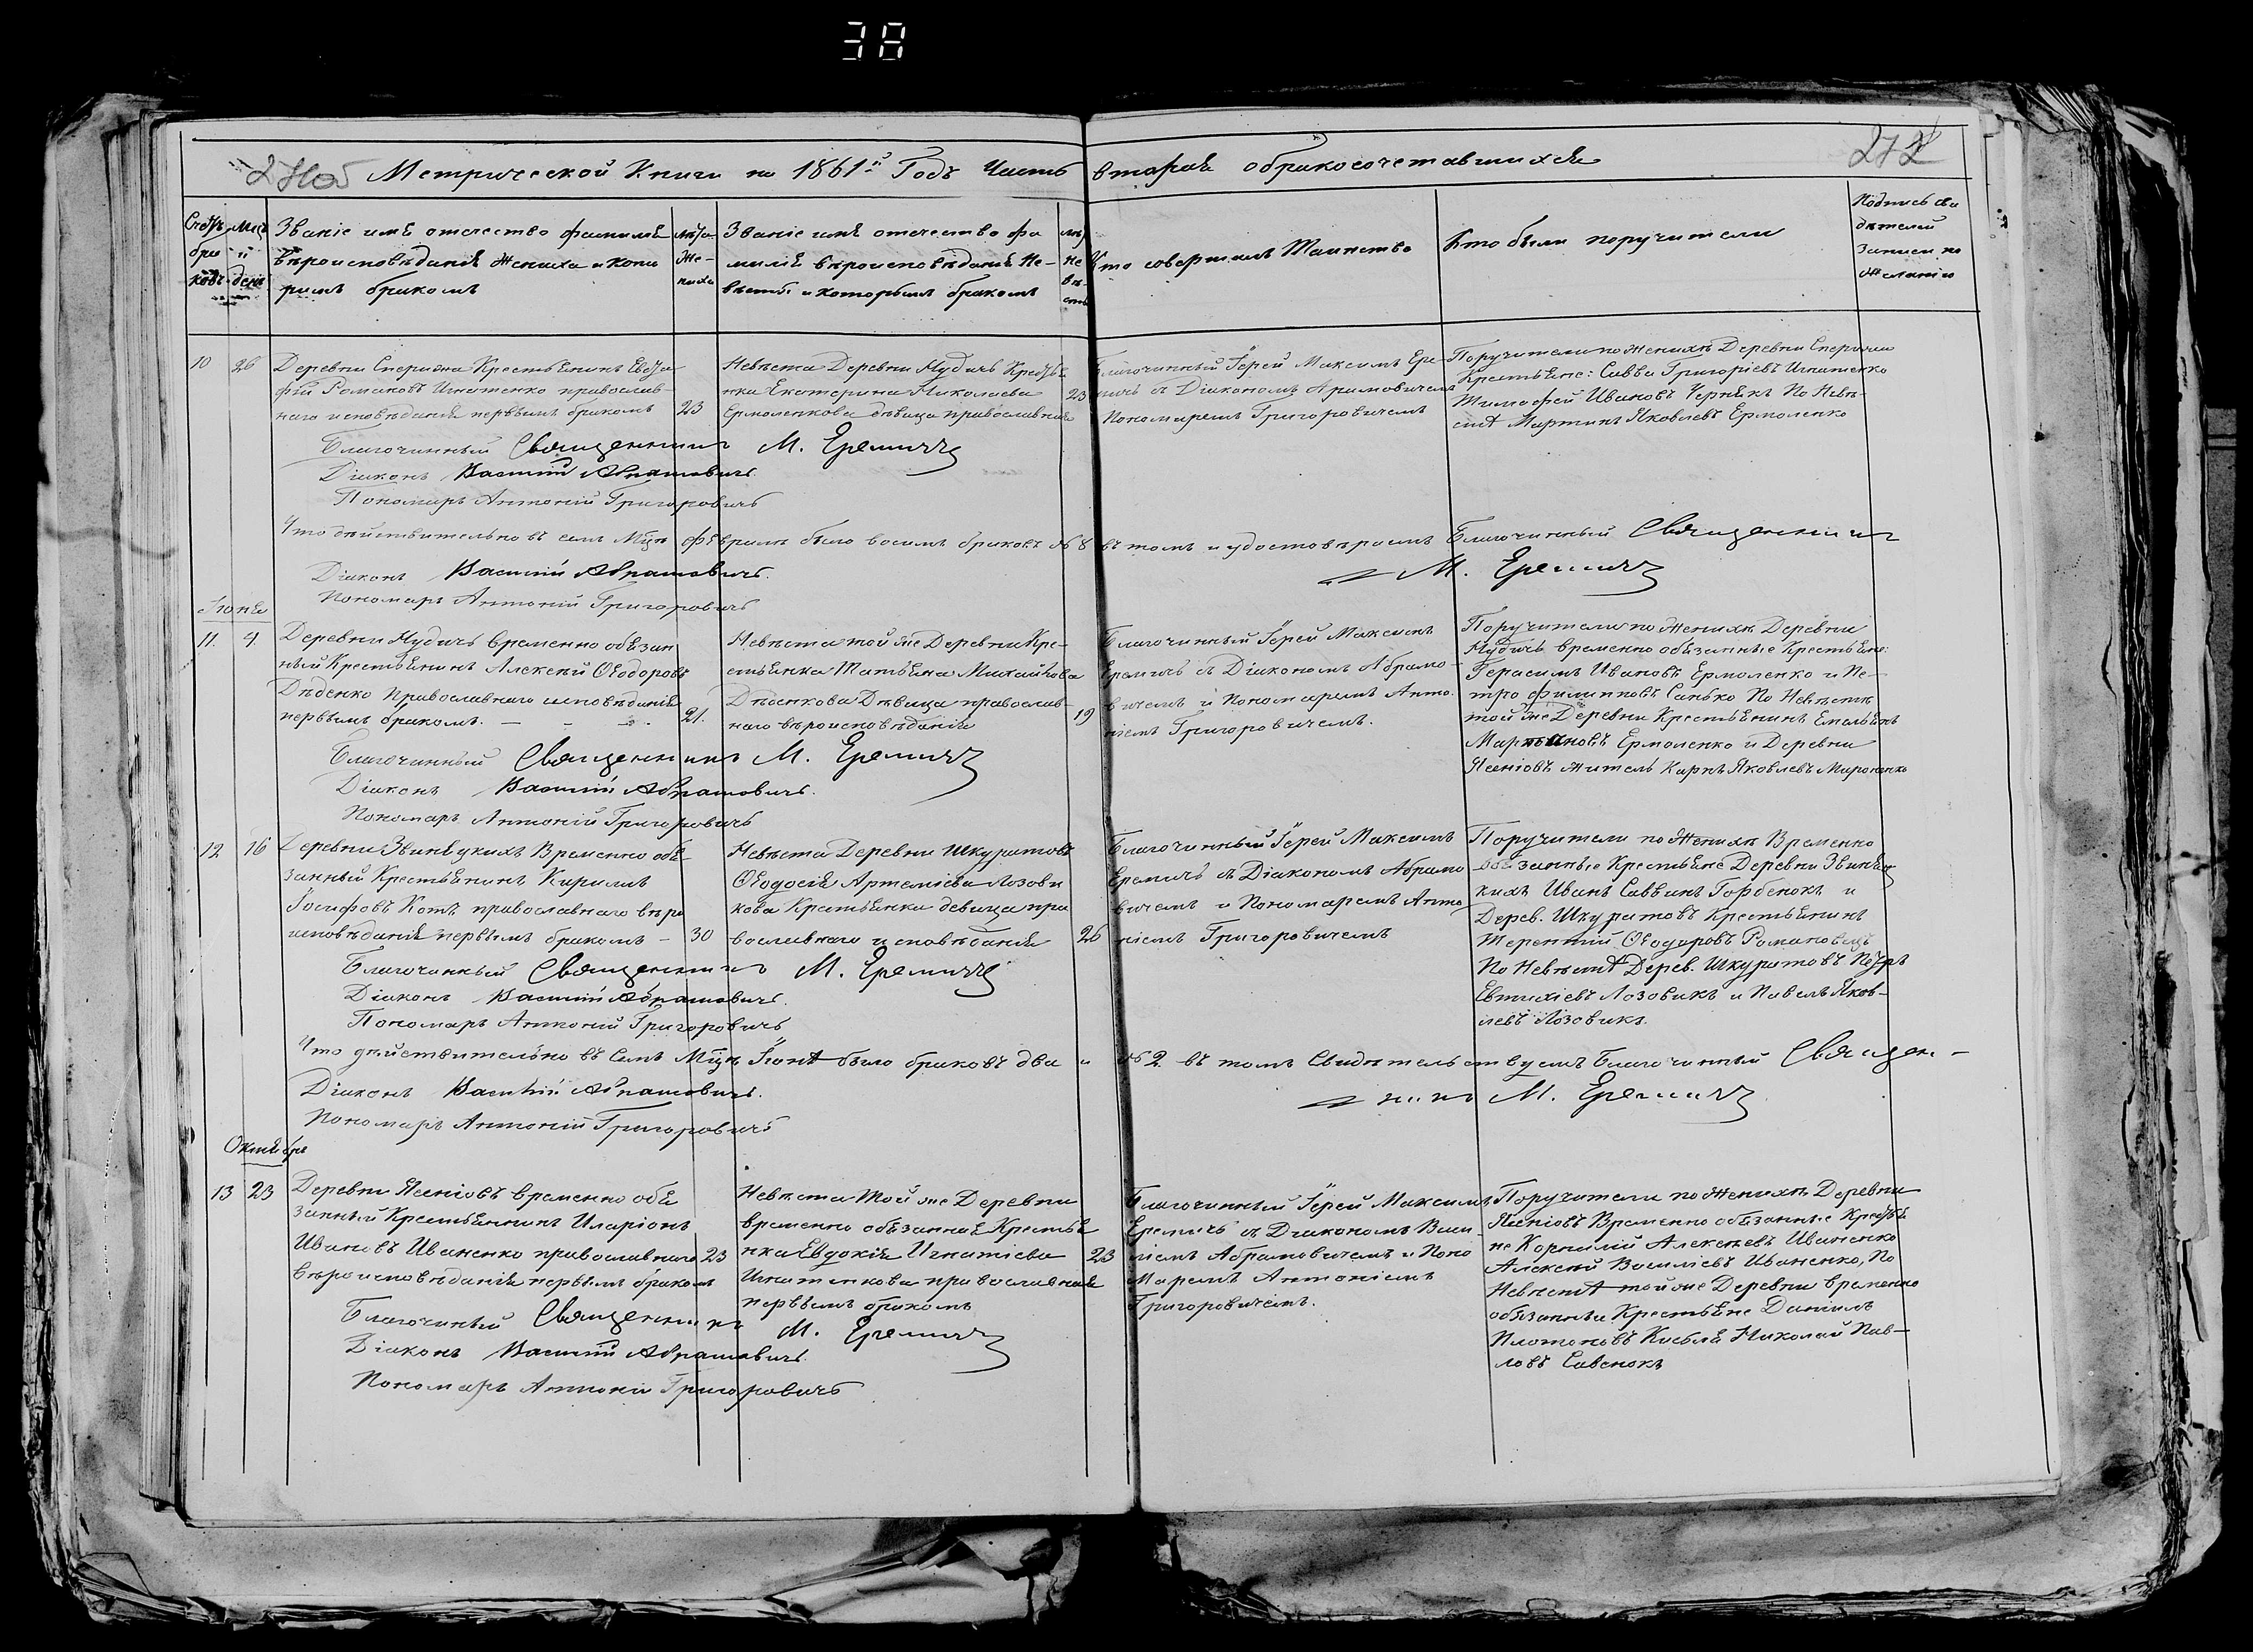 38
Метрической Книги на 1861й Годъ Часть вторая о бракосочетавшихся
272
Счетъ бра ковъ
Мцъ и день
Званіе имя отечество фамилія
вѣроисповѣданія Жениха и кото
рымъ бракомъ
лѣта Же- ниха
Званіе имя отечество фа
милія вѣроисповѣданія Не-
вѣсты и которымъ бракомъ
лѣт не вѣ- сты
Кто совершалъ Таинство
Кто были поручители
Подпись сви
дѣтелей
Записи по
Желанію
10 26
Деревни Сперижа Крестьянинъ Евста
фій Романовъ Игнатенко православ-
наго исповѣданія первымъ бракомъ 23
Невѣста Деревни Нудичъ Крестья
нка Екатерина Николаева
Ермоленкова дѣвица православная 23
Благочинный Іерей Максимъ Ере-
мичъ съ Діакономъ Абрамовичемъ
Пономаремъ Григоровичемъ
Поручители по Женихѣ Деревни Сперижи
Крестьяне: Савва Григоріевъ Игнатенко
Тимофей Ивановъ Чернякъ По Невѣ-
стѣ Мартинъ Яковлевъ Ермоленко
Благочинный Священникъ М. Еремичъ
Діаконъ Василій Абрамовичъ
Пономарь Антоній Григоровичъ
Что дѣйствительно въ семъ Мцѣ февралѣ было восемь браковъ № 8 въ томъ и удостовѣряемъ Благочинный Священникъ
М. Еремичъ
Діаконъ Василій Абрамовичъ.
Пономарь Антоній Григоровичъ
Іюня
11. 9.
Деревни Нудичъ временно обязан
ный Крестьянинъ Алексѣй Ѳеодоровъ
Дѣденко Православнаго исповѣданія
первымъ бракомъ. — 21.
Невѣста той же Деревни Кре-
стьянка Татьяна Михайлова
Дѣвица православ-
наго вѣроисповѣданія 19
Благочинный Іерей Максимъ
Еремичъ съ Діакономъ Абрамо-
вичемъ и Пономаремъ Анто-
ніемъ Григоровичемъ.
Поручители по Женихѣ Деревни
Нудичъ временно обязанные Крестьяне:
Герасимъ Ивановъ Ермоленко и Пе-
тро Филипповъ Санько По Невѣстѣ
той же Деревни Крестьянинъ Емельянъ
Мартыновъ Ермоленко и Деревни
Ясеніовъ житель Карпъ Яковлевъ Мироненко
Благочинный Священникъ М. Еремичъ
Діаконъ Василій Абрамовичъ.
Пономарь Антоній Григоровичъ
12 16
Деревни Звиняцкихъ Временно обя-
занный Крестьянинъ Кирилъ
Іосифовъ Котъ православнаго вѣро
исповѣданія первымъ бракомъ — 30
Невѣста Деревни Шкуратовъ
Ѳеодосія Артеміева Лозови
кова Крестьянка девица пра
вославнаго исповѣданія 26
Благочинный Іерей Максимъ
Еремичъ съ Діакономъ Абрамо
вичемъ и Пономаремъ Анто
ніемъ Григоровичемъ
Поручители по Женихѣ Временно
обязанные Крестьяне Деревни Звиняц
кихъ Иванъ Саввинъ Горбенокъ и
Дерев. Шкуратовъ Крестьянинъ
Терентій Ѳеодоровъ Романовецъ
По Невѣстѣ Дерев. Шкуратовъ Петръ
Евтихіевъ Лозовикъ и Павелъ Яков-
левъ Лозовикъ
Благочинный Священникъ М. Еремичъ
Діаконъ Василій Абрамовичъ.
Пономарь Антоній Григоровичъ
Что дѣйствительно въ семъ Мцѣ Іюнѣ было браковъ два № 2 въ томъ Свидѣтельствуемъ Благочинный Священ-
никъ М. Еремичъ
Діаконъ Василій Абрамовичъ.
Пономарь Антоній Григоровичъ
Октябрь
13 23
Деревни Ясеніовъ временно обя
занный Крестьянинъ Иларіонъ
Ивановъ Иваненко православнаго 23
вѣроисповѣданія первымъ бракомъ
Невѣста Той же Деревни
временно обязанная Крестья
нка Евдокія Игнатіева
Игнатенкова православная
первымъ бракомъ 23
Благочинный Іерей Максимъ
Еремичъ съ Діакономъ Васи-
ліемъ Абрамовичемъ и Поно
Маремъ Антоніемъ
Григоровичемъ.
Поручители по Женихѣ Деревни
Ясеніовъ Временно обязанные Крестья
не Корнилій Алексѣевъ Иваненко
Алексѣй Василіевъ Иваненко, По
Невѣстѣ той же Деревни временно
обязанные Крестьяне Даніилъ
Платоновъ Николай Пав-
ловъ Савенокъ
Благочинный Священникъ М. Еремичъ
Діаконъ Василій Абрамовичъ.
Пономарь Антоній Григоровичъ